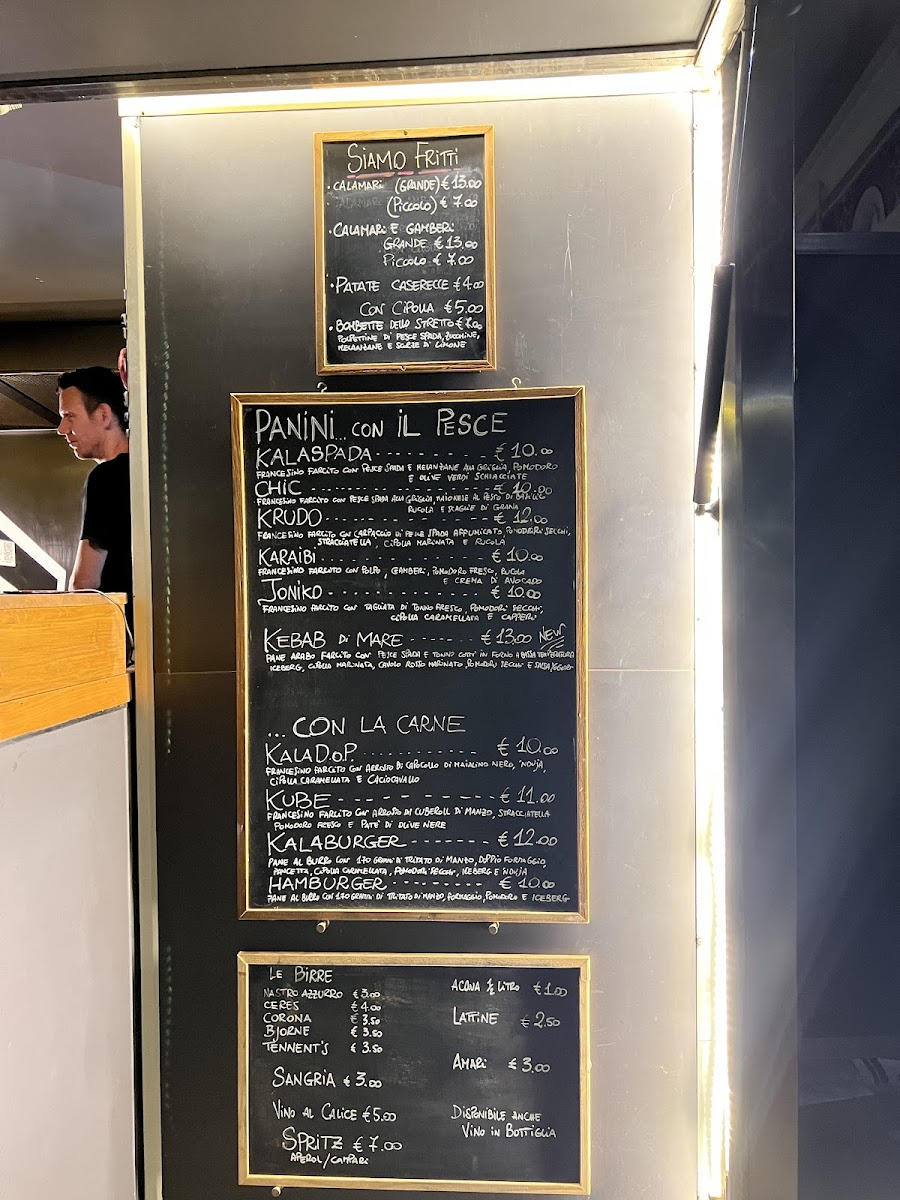 SIAMO FRITTI
• CALAMARI (GRANDE) € 13.00
(PICCOLO) € 7.00
• CALAMARI E GAMBERI
GRANDE € 13.00
PICCOLO € 7.00
• PATATE CASERECCE € 4.00
CON CIPOLLA € 5.00
• BOMBETTE DELLO STRETTO € 7.00
POLPETTINE DI PESCE SPADA, ZUCCHINE,
MELANZANE E SCORZE DI LIMONE
PANINI... CON IL PESCE
KALASPADA - - - - - - - - - € 10.00
FRANCESINO FARCITO CON PESCE SPADA E MELANZANE ALLA GRIGLIA, POMODORO
E OLIVE VERDI SCHIACCIATE
CHIC - - - - - - - - - € 10.00
FRANCESINO FARCITO CON PESCE SPADA ALLA GRIGLIA, MAIONESE AL PESTO DI BASILICO
RUCOLA E SCAGLIE DI GRANA
KRUDO - - - - - - - - - € 12.00
FRANCESINO FARCITO CON CARPACCIO DI PESCE SPADA AFFUMICATO, POMODORI SECCHI,
STRACCIATELLA, CIPOLLA MARINATA E RUCOLA
KARAIBI - - - - - - - - - € 10.00
FRANCESINO FARCITO CON POLPO, GAMBERI, POMODORO FRESCO, RUCOLA
E CREMA DI AVOCADO
JONIKO - - - - - - - - - € 10.00
FRANCESINO FARCITO CON TAGLIATA DI TONNO FRESCO, POMODORI SECCHI,
CIPOLLA CARAMELLATA E CAPPERI
KEBAB DI MARE - - - - - - € 13.00 NEW
PANE ARABO FARCITO CON PESCE SPADA E TONNO COTTI IN FORNO A BASSA TEMPERATURA
ICEBERG, CIPOLLA MARINATA, CAVOLO ROSSO MARINATO, POMODORI SECCHI E SALSA YOGURT
... CON LA CARNE
KALA D.O.P. - - - - - - - - - € 10.00
FRANCESINO FARCITO CON ARROSTO DI CAPOCOLLO DI MAIALINO NERO, 'NDUJA,
CIPOLLA CARAMELLATA E CACIOCAVALLO
KUBE - - - - - - - - - € 11.00
FRANCESINO FARCITO CON ARROSTO DI CUBEROLL DI MANZO, STRACCIATELLA
POMODORO FRESCO E PATE' DI OLIVE NERE
KALABURGER - - - - - - - € 12.00
PANE AL BURRO CON 170 GRAMMI DI TRITATO DI MANZO, DOPPIO FORMAGGIO,
PANCETTA, CIPOLLA CARAMELLATA, POMODORI SECCHI, ICEBERG E 'NDUJA
HAMBURGER - - - - - - - - € 10.00
PANE AL BURRO CON 170 GRAMMI DI TRITATO DI MANZO, FORMAGGIO, POMODORO E ICEBERG
LE BIRRE
NASTRO AZZURRO € 3.00
CERES € 4.00
CORONA € 3.50
BJORNE € 3.50
TENNENT'S € 3.50
SANGRIA € 3.00
VINO AL CALICE € 5.00
SPRITZ € 7.00
APEROL/CAMPARI
ACQUA ½ LITRO € 1.00
LATTINE € 2.50
AMARI € 3.00
DISPONIBILE ANCHE
VINO IN BOTTIGLIA